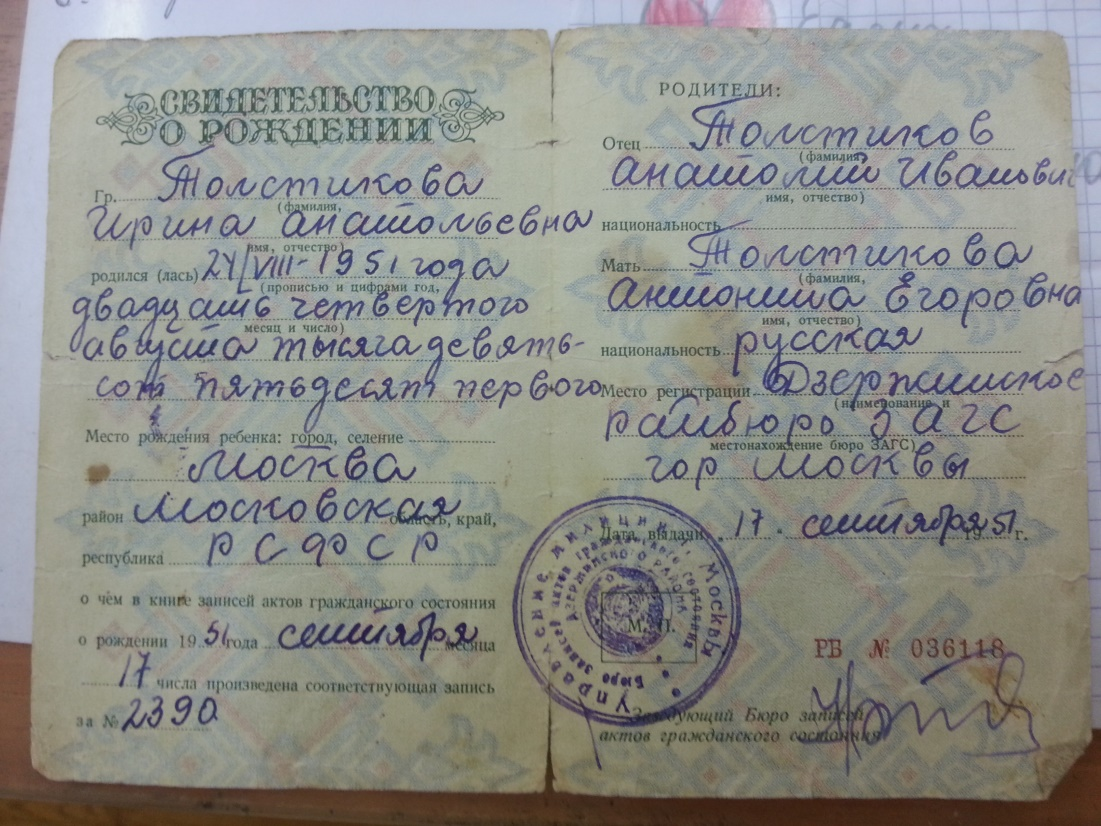 СВИДЕТЕЛЬСТВО
О РОЖДЕНИИ
Гр. Толстикова
(фамилия,
Ирина Анатольевна
имя, отчество)
родился (лась) 24/VIII-1951 года
(прописью и цифрами год,
двадцать четвертого
месяц и число)
августа тысяча девять-
сот пятьдесят первого
Место рождения ребенка: город, селение
Москва
район Московская область, край,
республика РСФСР
о чём в книге записей актов гражданского состояния
о рождении 1951 года сентября месяца
17 числа произведена соответствующая запись
за № 2390
РОДИТЕЛИ:
Отец Толстиков
(фамилия,
Анатолий Иванович
имя, отчество)
национальность
Мать Толстикова
(фамилия,
Антонина Егоровна
имя, отчество)
национальность русская
Место регистрации Дзержинское
(наименование и
райбюро ЗАГС
местонахождение бюро ЗАГС)
гор Москвы
Дата выдачи 17 сентября 1951 г.
Управление милиции г. Москвы
Бюро записей актов гражданского состояния
Дзержинского района
М. П.
РБ № 036118
Заведующий Бюро записей
актов гражданского состояния